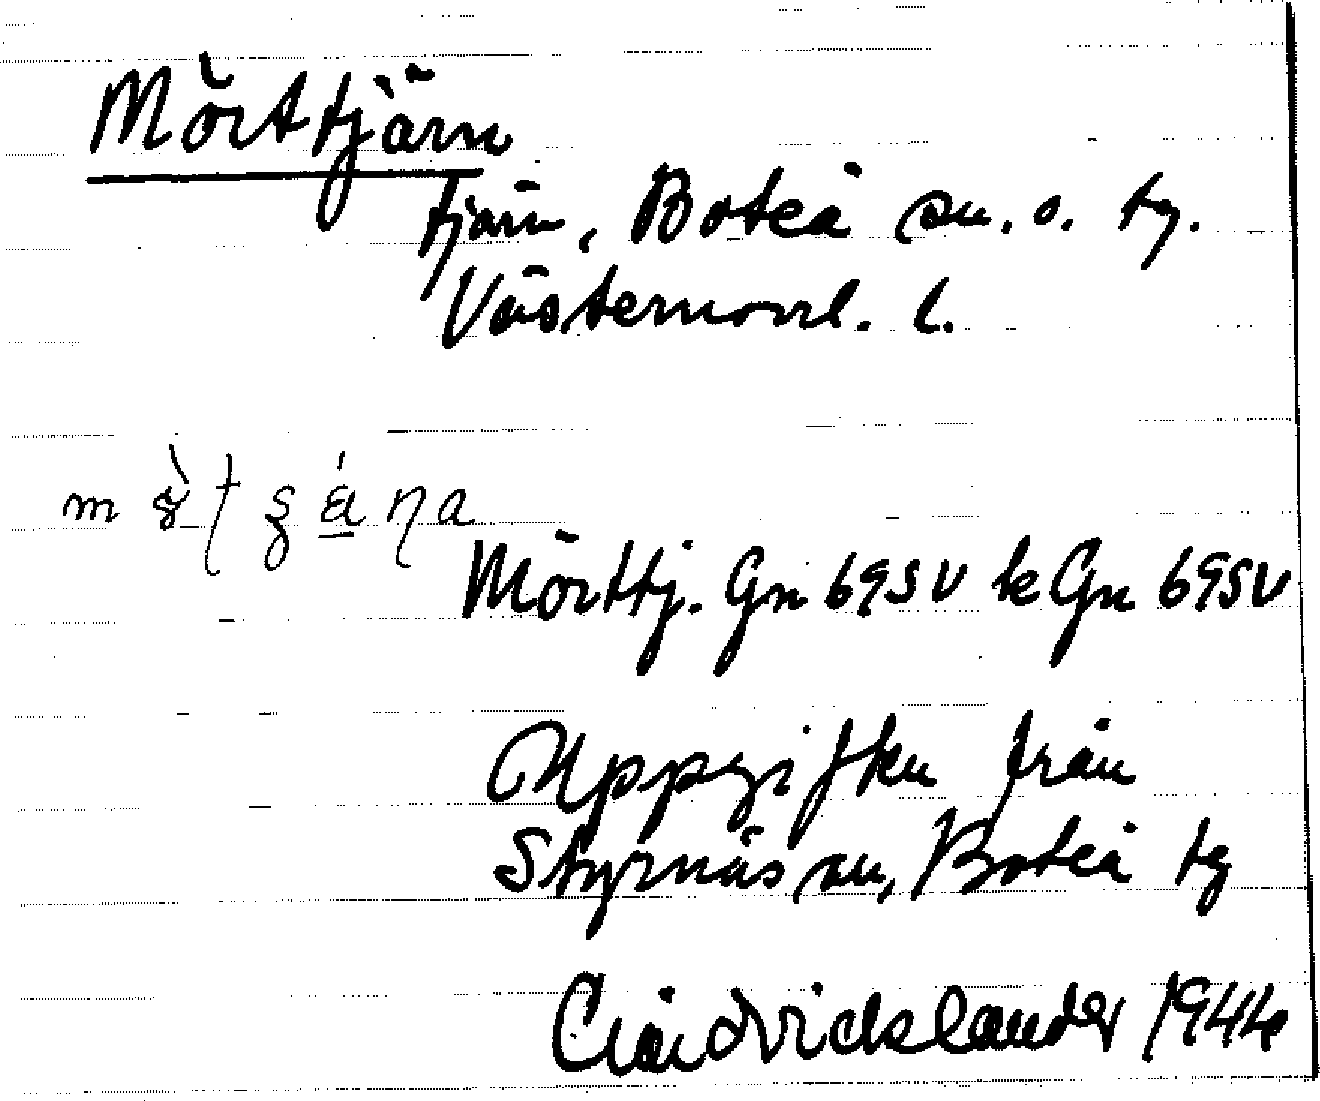 Mörttjärn
tjärn, Boteå sn. o. tg.
Västernorrl. l.
Mörttj. Gn 69SV ke Gn 69SV
Uppgiften från
Styrnäs sn, Boteå tg
1944